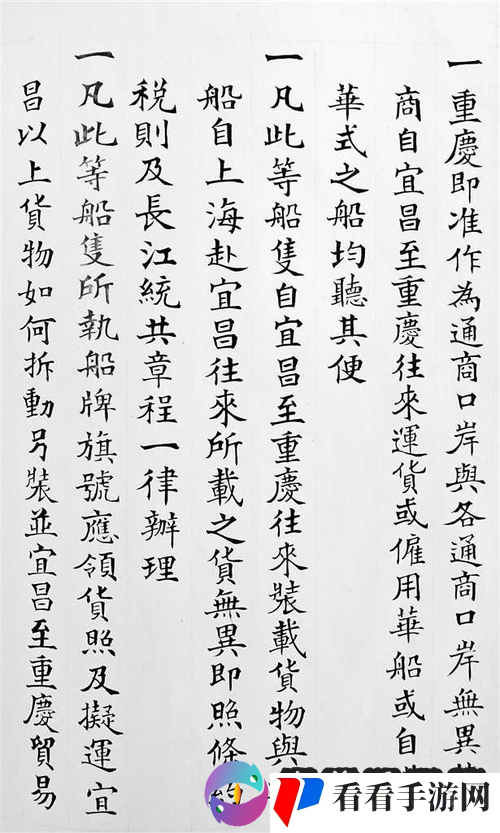 一重慶即准作為通商口岸與各通商口岸無異
商自宜昌至重慶往來運貨或僱用華船或自
華式之船均聽其便
一凡此等船隻自宜昌至重慶往來裝載貨物與
船自上海赴宜昌往來所載之貨無異即照條約
税則及長江統共章程一律辦理
一凡此等船隻所執船牌旗號應領貨照及擬運宜
昌以上貨物如何拆動另裝並宜昌至重慶貿易
看看手游网